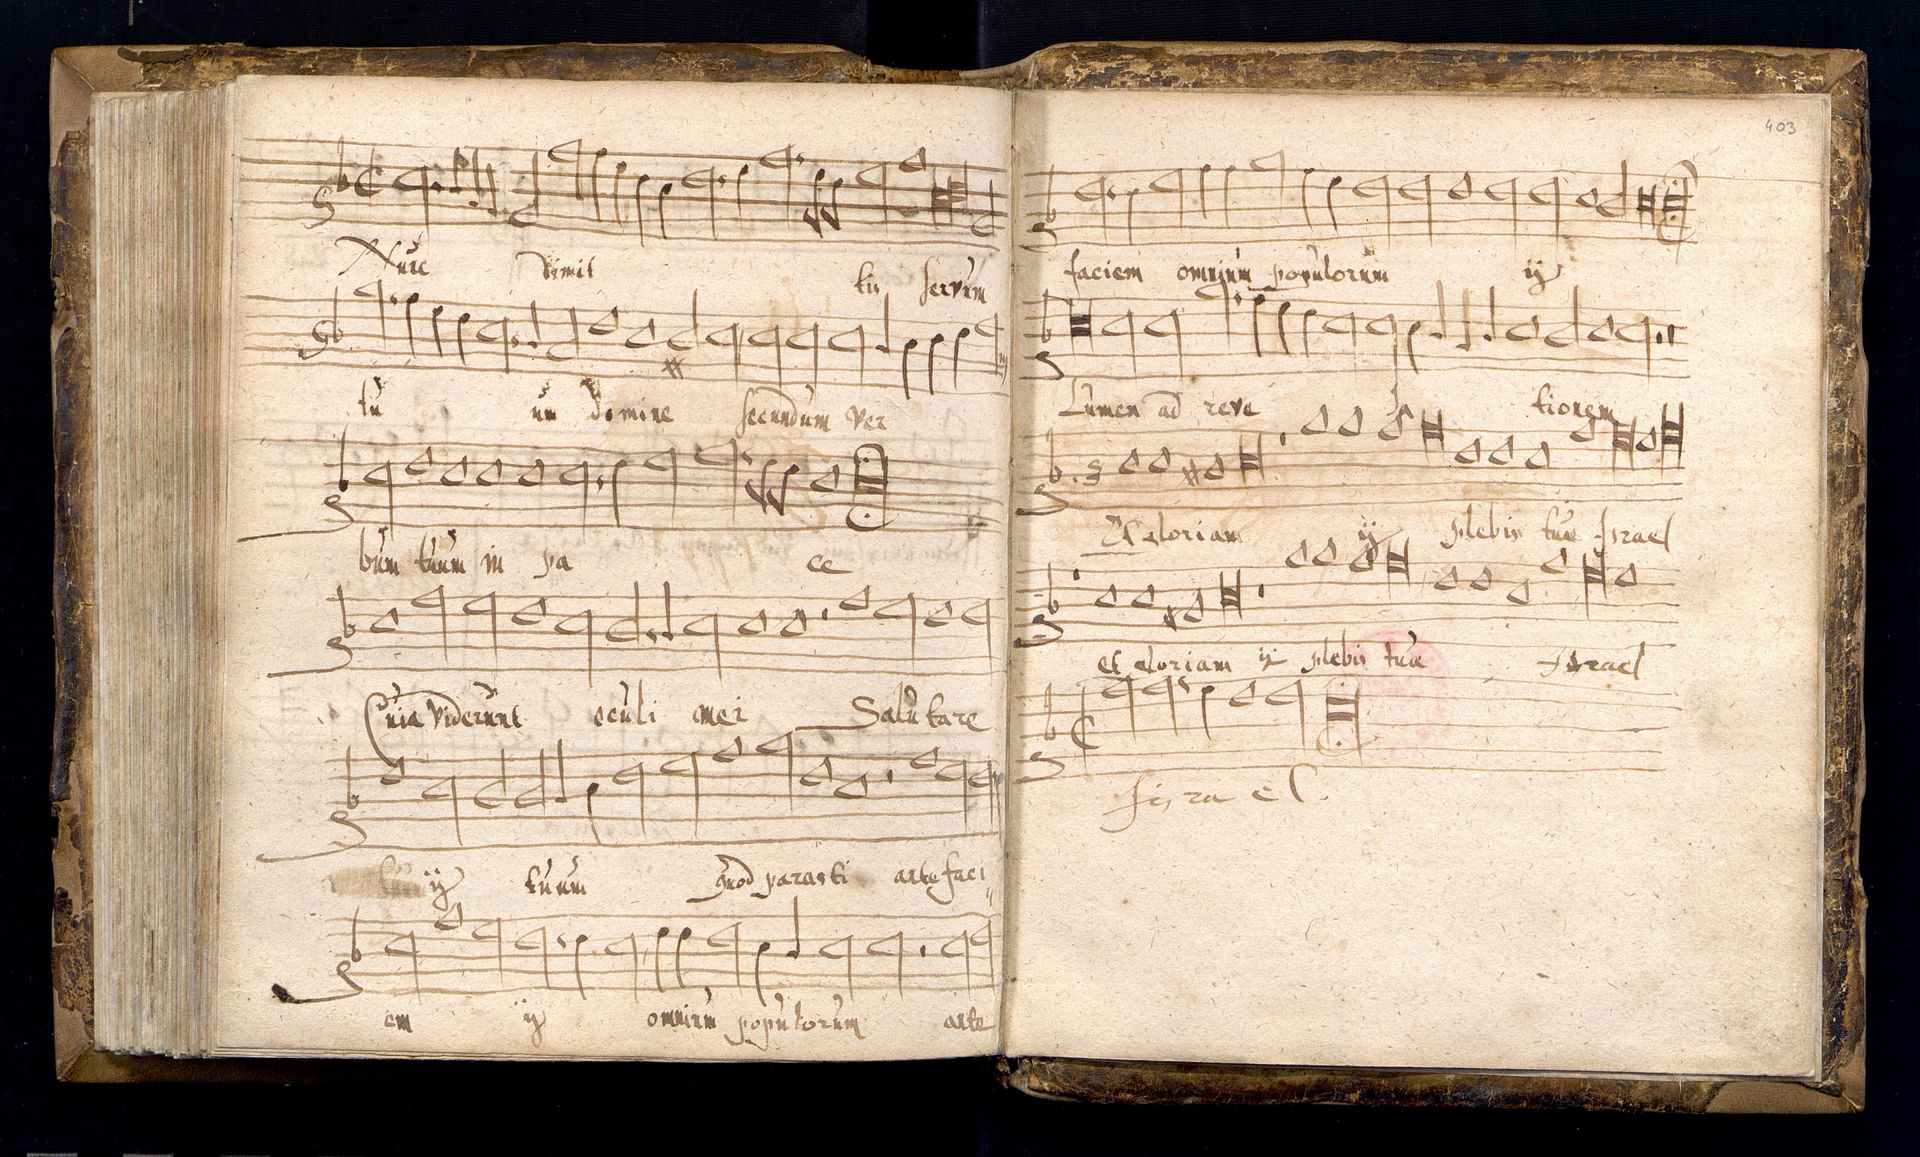 Nunc dimit tis servum
tu um domine secundum ver
bum tuum in pa ce
Quia viderunt oculi mei Salutare
ij tuum quod parasti ante faci
em ij omnium populorum ante
403
faciem omnium populorum ij
Lumen ad reve tionem
Et gloriam ij plebis tuæ Israel
et gloriam ij plebis tuæ Israel
Israel